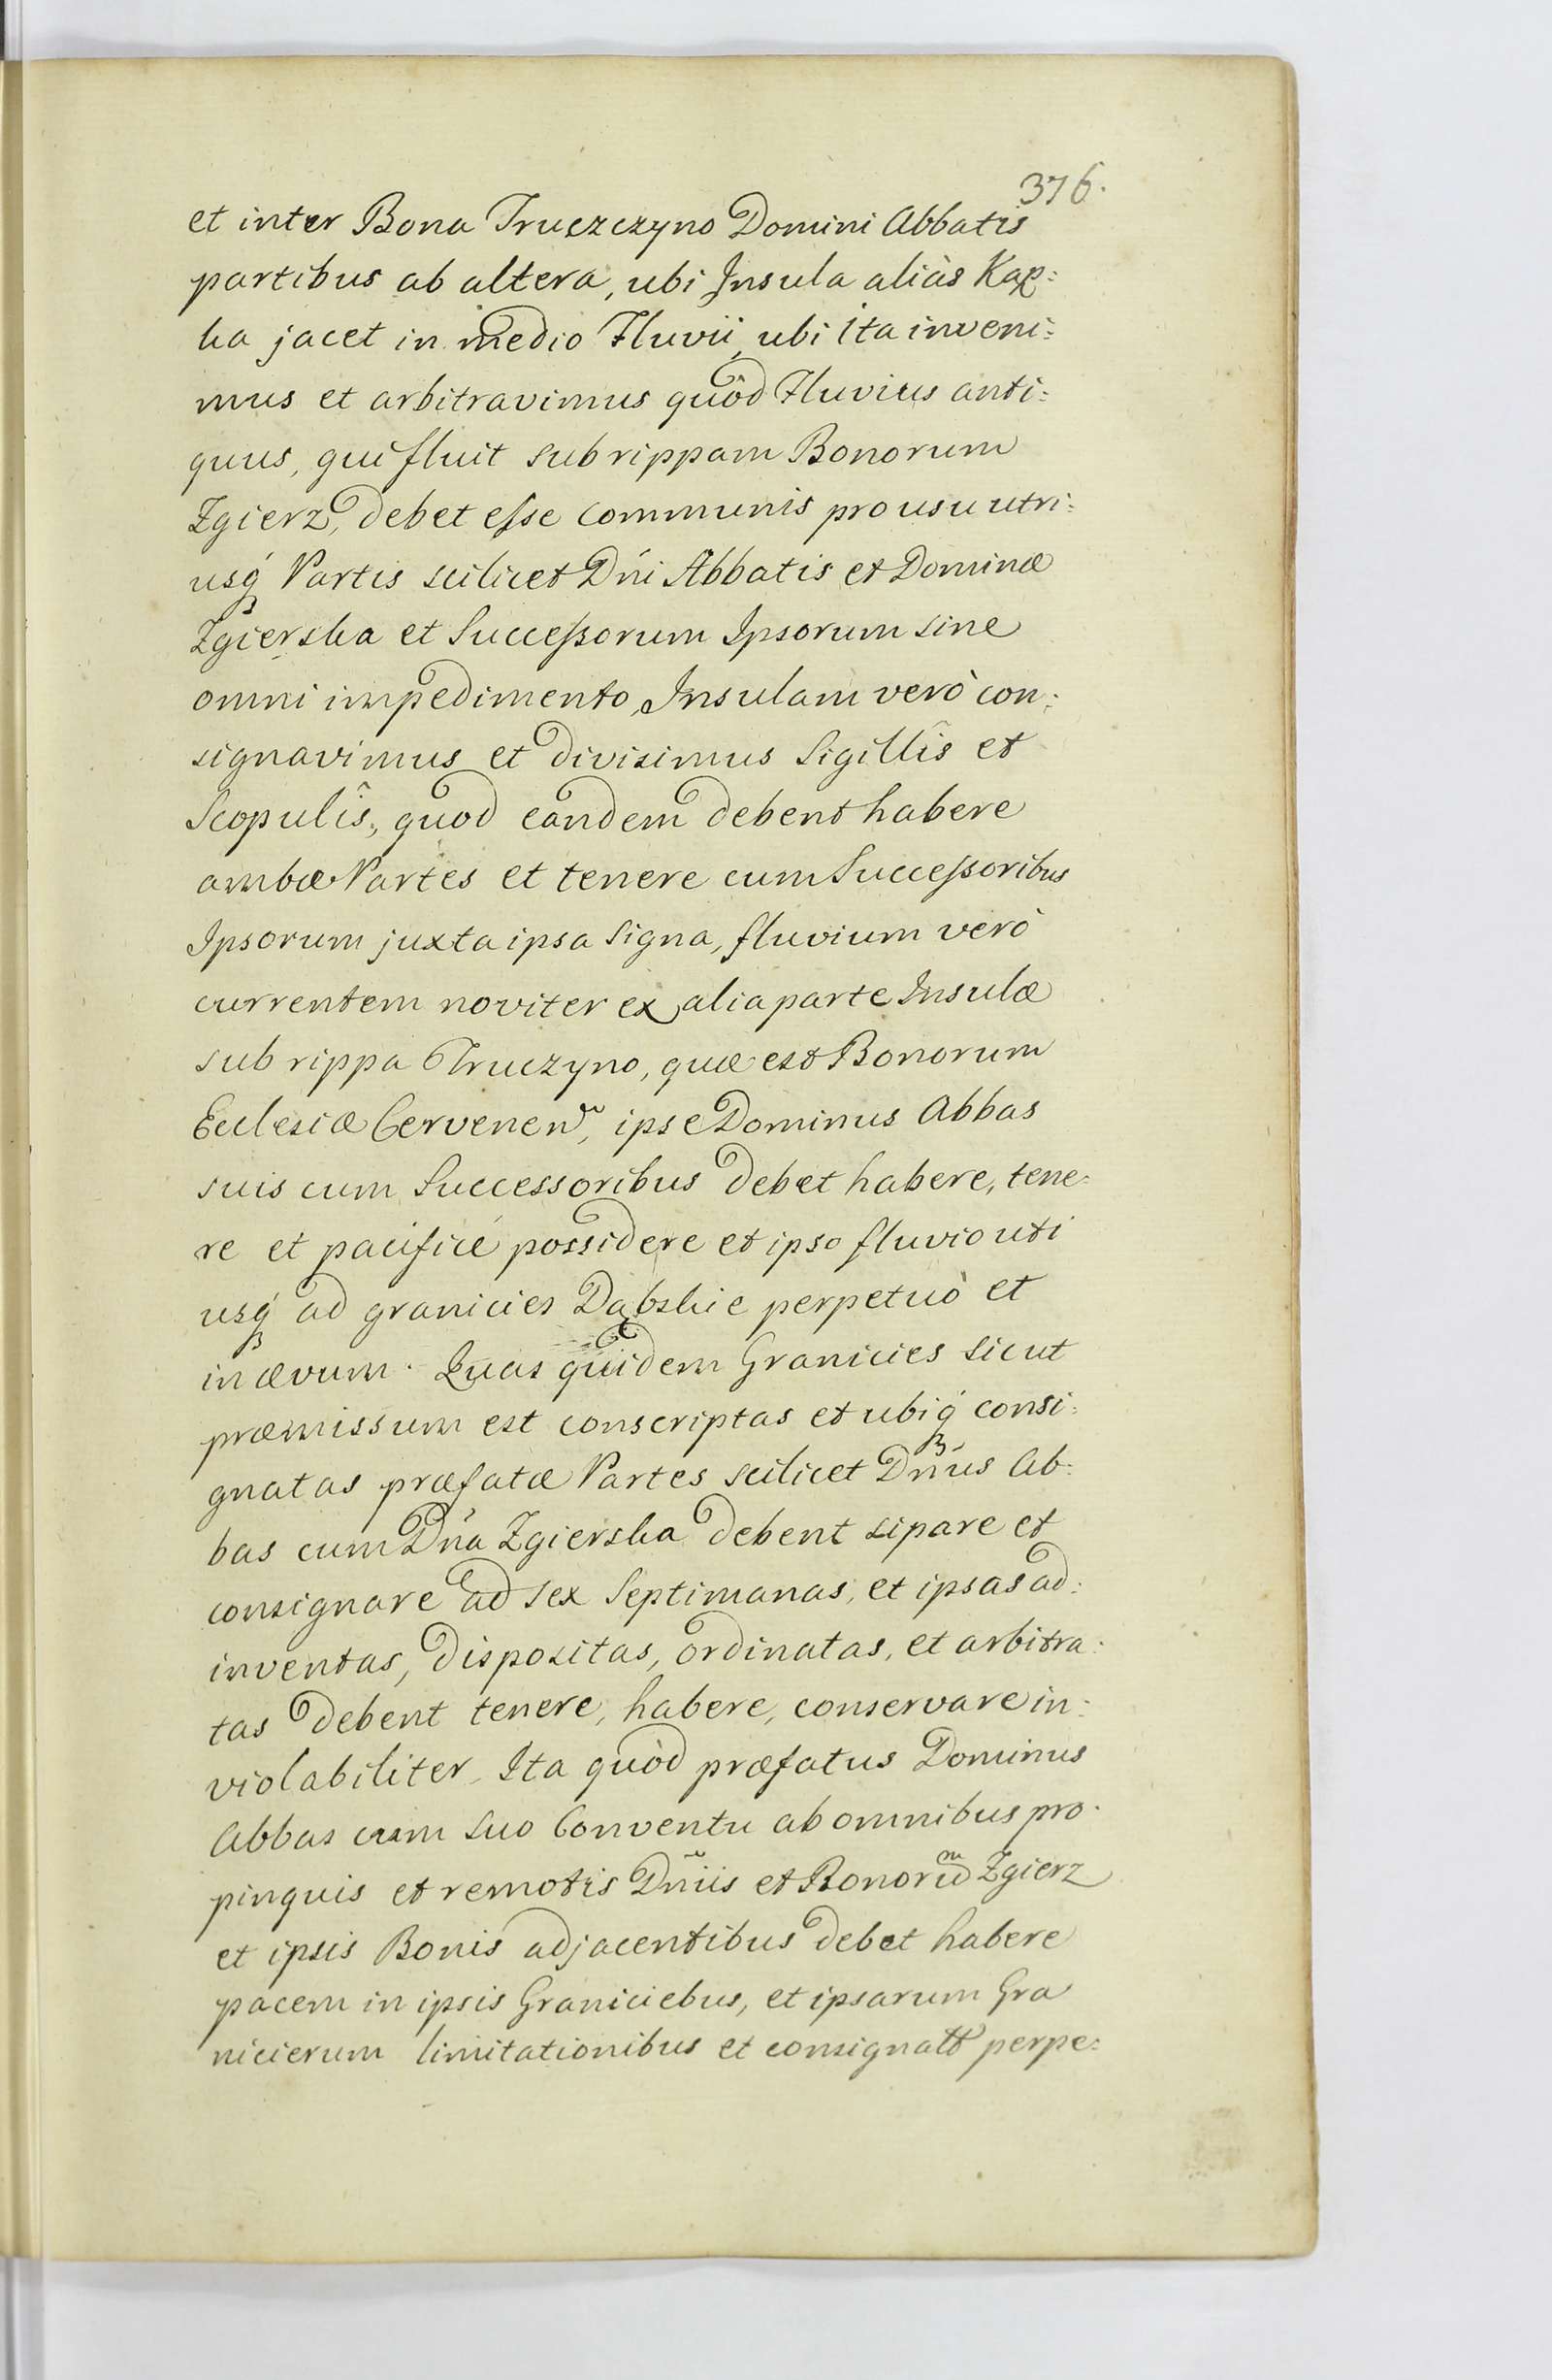 376.
et inter Bona Truszczyno Domini Abbatis
partibus ab altera, ubi Insula aliàs Kęp:
ka jacet in medio Fluvii, ubi ita inveni:
mus et arbitravimus quòd Fluvius anti:
quus, qui fluit sub rippam Bonorum
Zgierz, debet esse communis pro usu utri:
usq́ Partis scilicet Dńi Abbatis et Dominæ
Zgierska et Successorum Ipsorum sine
omni impedimento, Insulam verò con:
signavimus et divisimus Sigillis et
Scopulis, quod eandem debent habere
ambæ Partes et tenere cum Successoribus
Ipsorum juxta ipsa Signa, fluvium verò
currentem noviter ex alia parte Insulæ
sub rippa Truczyno, quæ est Bonorum
Ecclesiæ Cervenen, ipse Dominus Abbas
suis cum Successoribus debet habere, tene:
re et pacificé possidere et ipso fluvio uti
usq́ ad granicies Dąbskie perpetuò et
in ævum. Quas quidem Granicies sicut
præmissum est conscriptas et ubiq́ consi:
gnatas præfatæ Partes scilicet Dńus Ab:
bas cum Dńa Zgierska debent sipare et
consignare ad sex Septimanas, et ipsas ad:
inventas, dispositas, ordinatas, et arbitra:
tas debent tenere, habere, conservare in:
violabiliter. Ita quòd præfatus Dominus
Abbas cum suo Conventu ab omnibus pro:
pinquis et remotis Dniis et Bonorum Zgierz
et ipsis Bonis adjacentibus debet habere
pacem in ipsis Graniciebus, et ipsarum Gra
nicierum limitationibus et consignatt perpe: